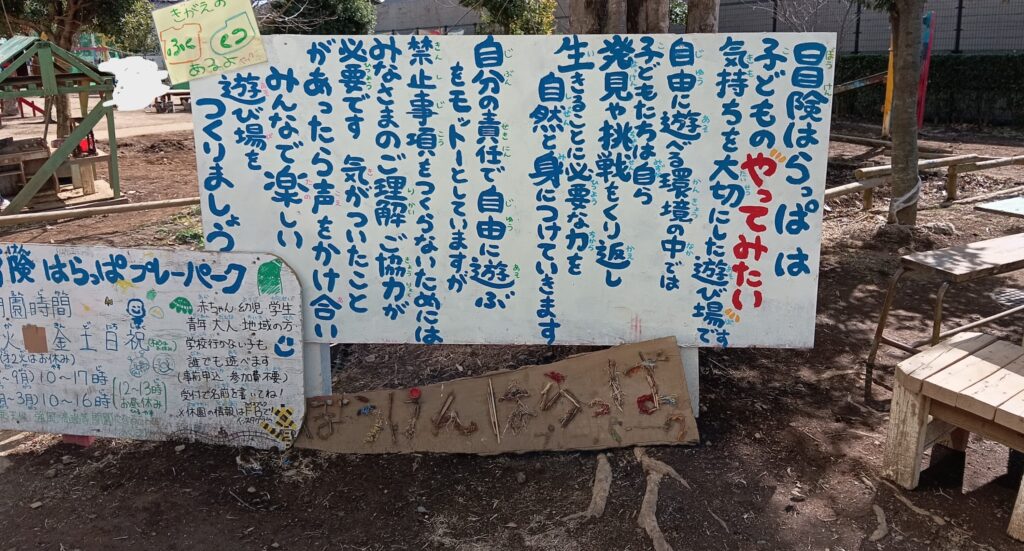 きがえの
ふく くつ
あるよ
冒険はらっぱは
子どもの やってみたい
気持ちを大切にした遊び場です
自由に遊べる環境の中では
子どもたちは自ら
発見や挑戦をくり返し
生きることに必要な力を
自然と身につけていきます
自分の責任で自由に遊ぶ
をモットーとしていますが
禁止事項をつくらないためには
みなさまのご理解 ご協力が
必要です 気がついたこと
があったら声をかけ合い
みんなで楽しい
遊び場を
つくりましょう
険 はらっぱプレーパーク
園時間
火 金土日祝
9月)10〜17時
月-3月)10〜16時
(12〜13時
お昼休み)
赤ちゃん 幼児 学生
青年 大人 地域の方
学校行かない子も
誰でも遊べます
(事前申込 参加費不要)
受付で名前を書いてね!
※休園の情報はFBで!
ぼうけんはらっぱ